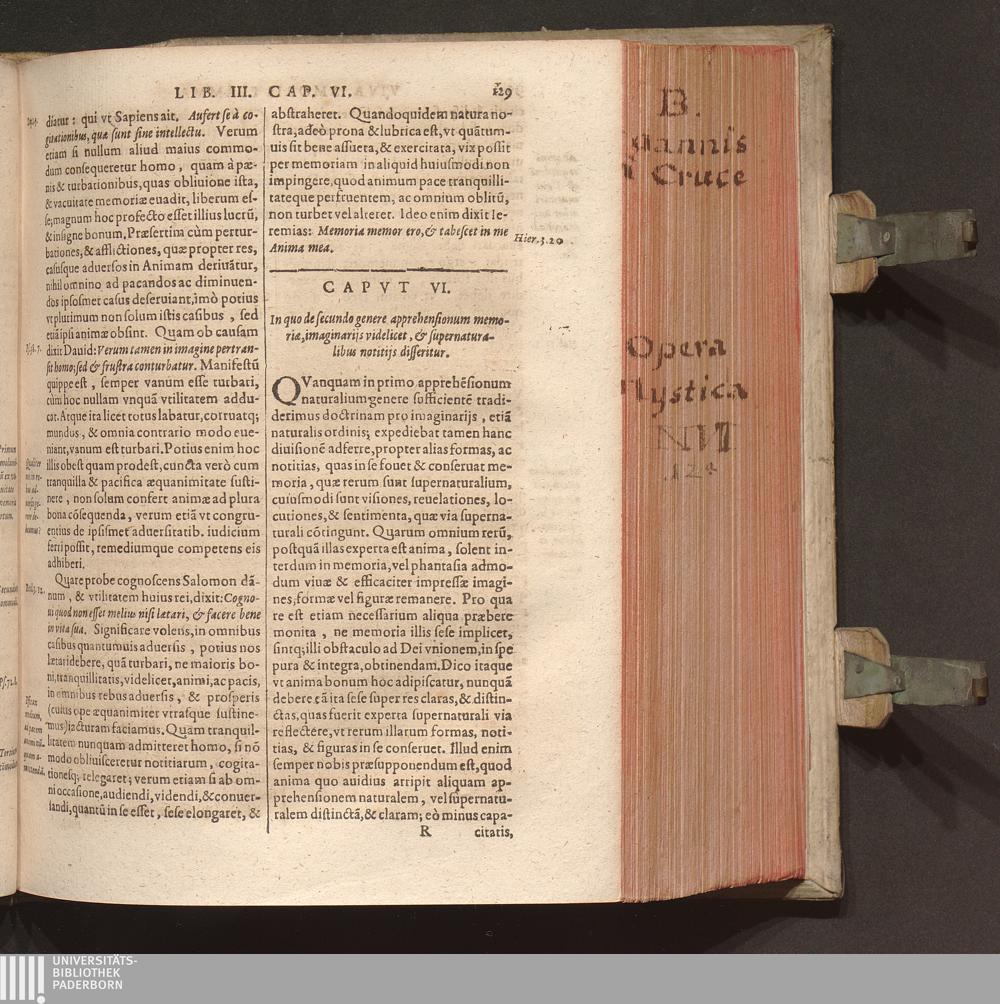 LIB. III. CAP. VI. 129
diatur: qui vt Sapiens ait. Aufert se à co-
gitationibus, quæ sunt sine intellectu. Verum
etiam si nullum aliud maius commo-
dum consequeretur homo, quam à pæ-
nis & turbationibus, quas obliuione ista,
& vacuitate memoriæ euadit, liberum es-
se; magnum hoc profecto esset illius lucrũ,
& insigne bonum. Præsertim cùm pertur-
bationes, & afflictiones, quæ propter res,
casusque aduersos in Animam deriuãtur,
nihil omnino ad pacandos ac diminuen-
dos ipsosmet casus deseruiant, imò potius
vt plurimum non solum istis casibus, sed
etiã ipsi animæ obsint. Quam ob causam
Psal. 7.
dixit Dauid: Verum tamen in imagine pertran-
sit homo; sed & frustra conturbatur. Manifestũ
quippe est, semper vanum esse turbari,
cùm hoc nullam vnquã vtilitatem addu-
cat. Atque ita licet totus labatur, corruatq;
mundus, & omnia contrario modo eue-
niant, vanum est turbari. Potius enim hoc
illis obest quam prodest, cuncta verò cum
tranquilla & pacifica æquanimitate susti-
nere, non solum confert animæ ad plura
bona cõsequenda, verum etiã vt congru-
entius de ipsismet aduersitatib. iudicium
ferri possit, remediumque competens eis
adhiberi.
Quare probe cognoscens Salomon dã-
num, & vtilitatem huius rei, dixit: Cogno-
ui quod non esset melius nisi lætari, & facere bene
in vita sua. Significare volens, in omnibus
casibus quantumuis aduersis, potius nos
lætari debere, quã turbari, ne maioris bo-
ni, tranquillitatis, videlicet, animi, ac pacis,
in omnibus rebus aduersis, & prosperis
(cuius ope æquanimiter vtrasque sustine-
mus) iacturam faciamus. Quam tranquil-
litatem nunquam admitteret homo, si nõ
modo obliuisceretur notitiarum, cogita-
tionesq; relegaret; verum etiam si ab om-
ni occasione, audiendi, videndi, & conuer-
sandi, quantũ in se esset, sese elongaret, &
abstraheret. Quandoquidem natura no-
stra, adeò prona & lubrica est, vt quãtum-
uis sit bene assueta, & exercitata, vix possit
per memoriam in aliquid huiusmodi non
impingere, quod animum pace tranquilli-
tateque perfruentem, ac omnium oblitũ,
non turbet vel alteret. Ideo enim dixit Ie-
remias: Memoria memor ero, & tabescet in me
Anima mea.
Hier. 3. 20
CAPVT VI.
In quo de secundo genere apprehensionum memo-
riæ, imaginarijs videlicet, & supernatura-
libus notitijs disseritur.
QVanquam in primo apprehẽsionum
naturalium genere sufficientẽ tradi-
derimus doctrinam pro imaginarijs, etiã
naturalis ordinis; expediebat tamen hanc
diuisionẽ adferre, propter alias formas, ac
notitias, quas in se fouet & conseruat me-
moria, quæ rerum sunt supernaturalium,
cuiusmodi sunt visiones, reuelationes, lo-
cutiones, & sentimenta, quæ via superna-
turali cõtingunt. Quarum omnium rerũ,
postquã illas experta est anima, solent in-
terdum in memoria, vel phantasia admo-
dum viuæ & efficaciter impressæ imagi-
nes, formæ vel figuræ remanere. Pro qua
re est etiam necessarium aliqua præbere
monita, ne memoria illis sese implicet,
sintq; illi obstaculo ad Dei vnionem, in spe
pura & integra, obtinendam. Dico itaque
vt anima bonum hoc adipiscatur, nunquã
debere eã ita sese super res claras, & distin-
ctas, quas fuerit experta supernaturali via
reflectere, vt rerum illarum formas, noti-
tias, & figuras in se conseruet. Illud enim
semper nobis præsupponendum est, quod
anima quo auidius arripit aliquam ap-
prehensionem naturalem, vel supernatu-
ralem distinctã, & claram; eò minus capa-
R citatis,
B.
oannis
Cruce
Opera
Mystica
UNIVERSITÄTS-
BIBLIOTHEK
PADERBORN